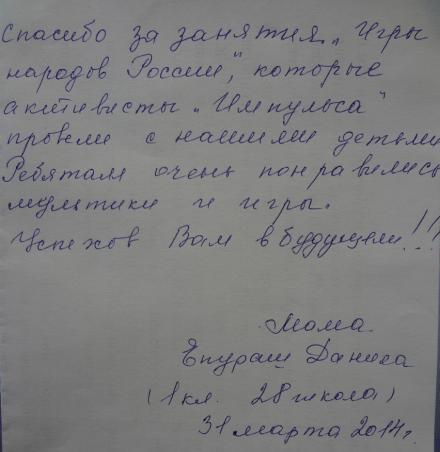 Спасибо за занятия „Игры
народов России", которые
активисты „Импульса"
провели с нашими детьми
Ребятам очень понравились
мультики и игры.
Успехов Вам в будущем!!!
Мама
Епураш Данила
(1 кл. 28 школа)
31 марта 2014г.